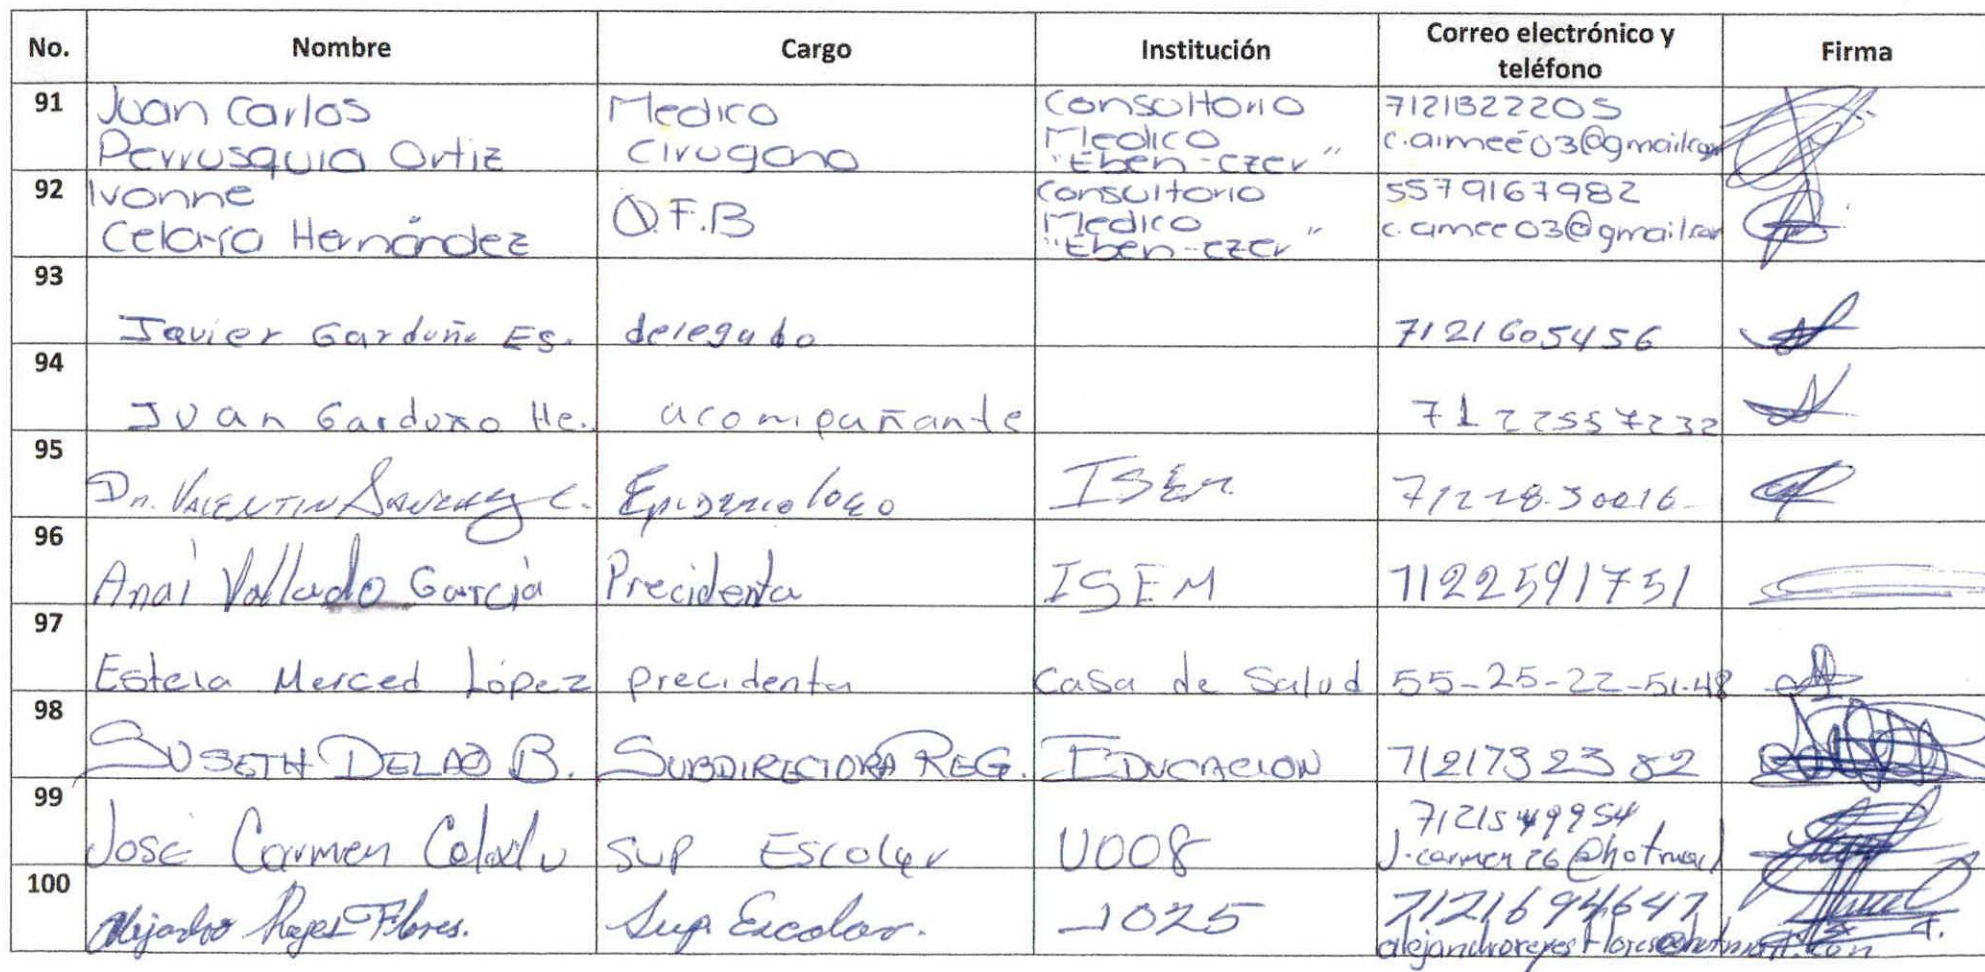 No. Nombre Cargo Institución Correo electrónico y teléfono Firma
91 Juan Carlos Perrusquia Ortiz Medico Cirugano Consultorio Medico "Eben-ezer" 7121322205 c.aimee03@gmail.com
92 Ivonne Celaya Hernández Q.F.B Consultorio Medico "Eben-ezer" 5579167982 c.aimee03@gmail.com
93 Javier Garduño Es. delegado 7121605456
94 Juan Garduño He. acompañante 7122557232
95 Dr. VALENTIN SANCHEZ C. Epidemiologo ISEM
96 Anai Vallado García Precidenta ISEM 7122591751
97 Estela Merced López precidenta casa de Salud 55-25-22-51-48
98 SUSETH DELAO B. SUBDIRECTORA REG. EDUCACION 7121732382
99 José Carmen Sup Escolar U008 7121549954 J.carmen26@hotmail
100 Alejandro Reyes Flores. Sup. Escolar. J025 7121694647 alejandroreyesflores@hotmail.com